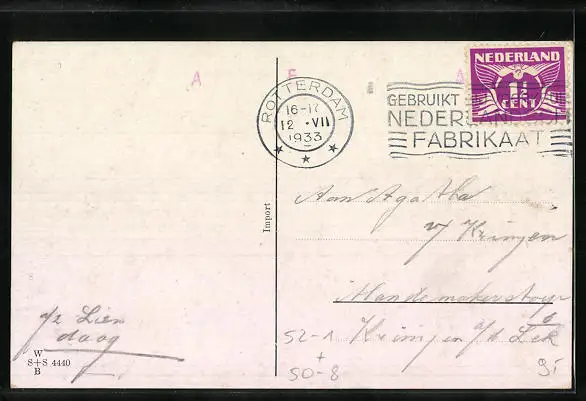 A F A
NEDERLAND
1½
CENT
ROTTERDAM
16-17
12 · VII
1933
GEBRUIKT
NEDERLANDSCH
FABRIKAAT
Import
Aan Agatha
v/ Krimpen
Krimpen a/d Lek
a/z Lien
daag
52-1
+
50-8
W
S+S 4440
B